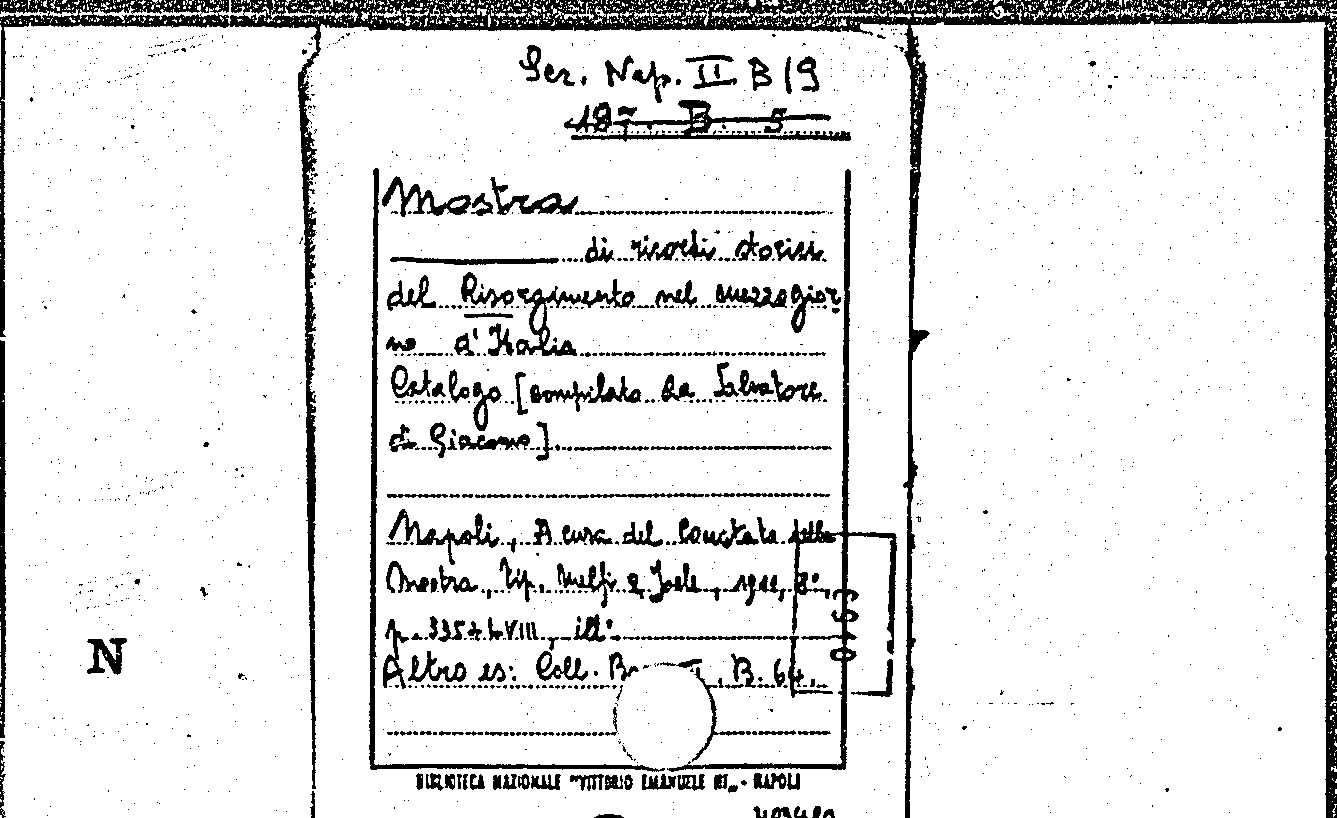 Sez. Nap. II B 19
B. 5
Mostra
di ricordi storici
del Risorgimento nel Mezzogior
no d'Italia
Catalogo [compilato da Salvatore
di Giacomo]
Napoli, A cura del Comitato della
Mostra, Tip. Melfi e Joele, 8°,
ill.
Altro es: Coll. B. 64.
N
BIBLIOTECA NAZIONALE "VITTORIO EMANUELE III" - NAPOLI